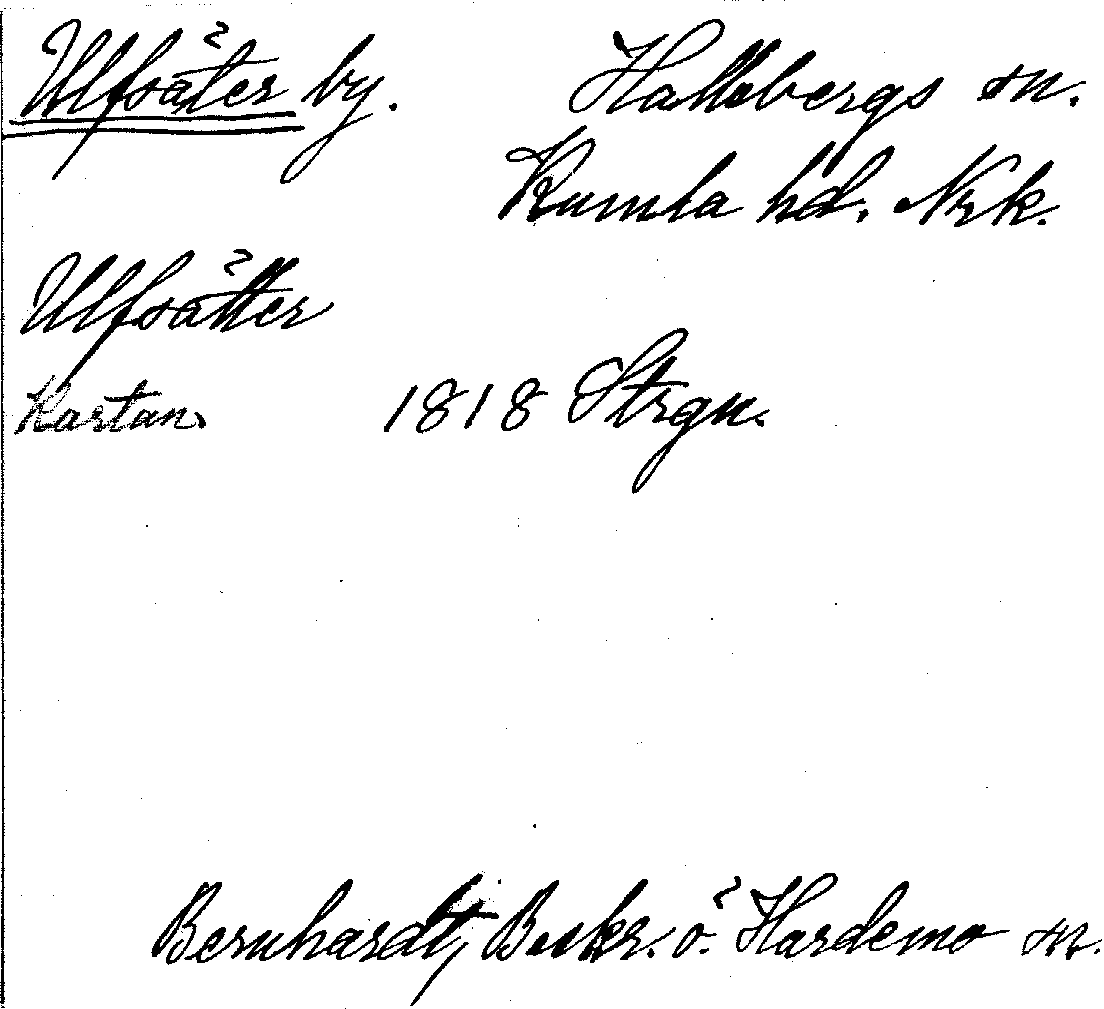 Ulfsäter by. Hallsbergs sn.
Kumla hd. Nrk.
Ulfsätter
Kartan 1818 Strgn.
Bernhardt, Beskr. ö. Hardemo sn.